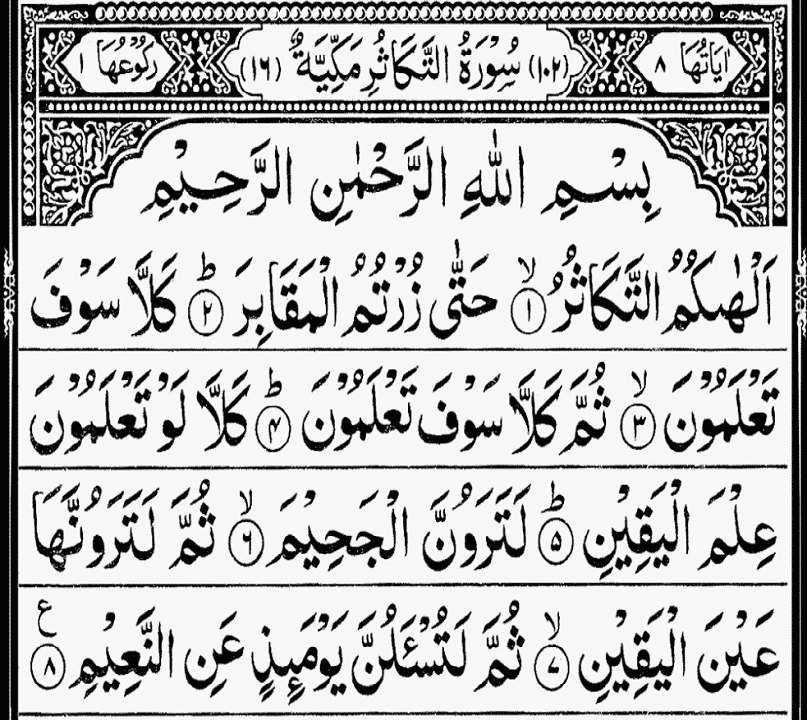 اٰیَاتُهَا ٨ (١٠٢) سُوْرَةُ التَّکَاثُرِ مَکِّیَّةٌ (١٦) رُکُوْعُهَا ١
بِسْمِ اللهِ الرَّحْمٰنِ الرَّحِیْمِ
اَلْهٰىکُمُ التَّکَاثُرُ ۙ ﴿١﴾ حَتّٰی زُرْتُمُ الْمَقَابِرَ ؕ ﴿٢﴾ کَلَّا سَوْفَ
تَعْلَمُوْنَ ۙ ﴿٣﴾ ثُمَّ کَلَّا سَوْفَ تَعْلَمُوْنَ ؕ ﴿۴﴾ کَلَّا لَوْ تَعْلَمُوْنَ
عِلْمَ الْیَقِیْنِ ؕ ﴿۵﴾ لَتَرَوُنَّ الْجَحِیْمَ ۙ ﴿٦﴾ ثُمَّ لَتَرَوُنَّهَا
عَیْنَ الْیَقِیْنِ ۙ ﴿٧﴾ ثُمَّ لَتُسْـَٔلُنَّ یَوْمَىِٕذٍ عَنِ النَّعِیْمِ ﴿٨﴾ ع